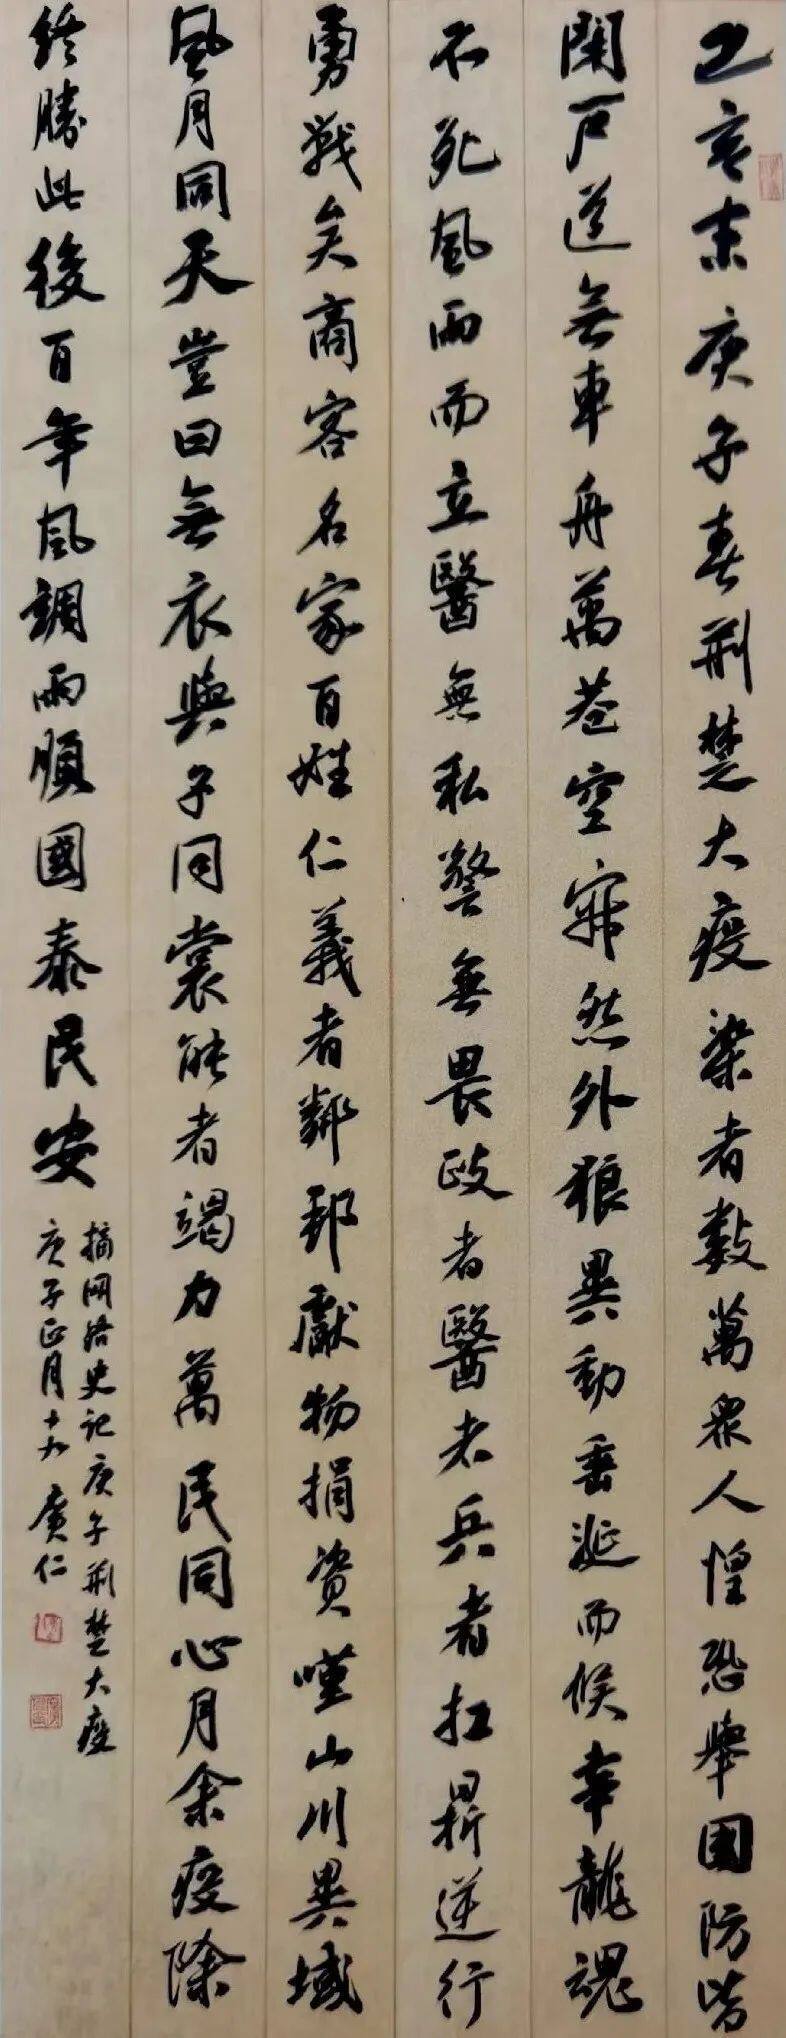 乙亥末庚子春荆楚大疫染者数萬衆人惶恐舉国防皆
閉户道無車舟萬巷空寂然外狼異動垂涎而候幸龍魂
不死風雨而立醫無私警無畏政者醫者兵者扛鼎逆行
勇戰矣商客名家百姓仁義者鄰邦獻物捐资嘆山川異域
風月同天豈曰無衣與子同裳能者竭力萬民同心月余疫除
終勝此後百年風調雨順國泰民安
摘网络史记庚子荆楚大疫
庚子正月十九 廣仁